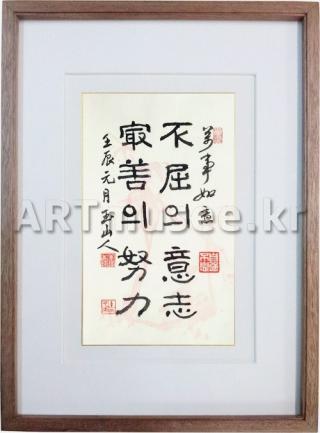 萬事如意
不屈의 意志
最善의 努力
壬辰 元月 山人
ARTmusee.kr